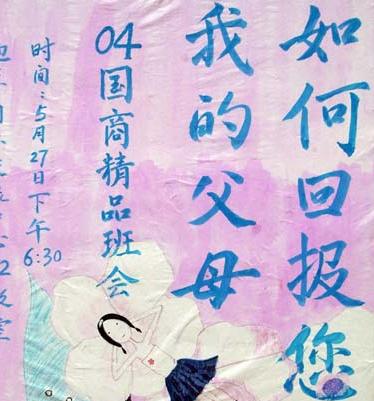 如何回报您
我的父母
04国商精品班会
时间:5月27日下午6:30